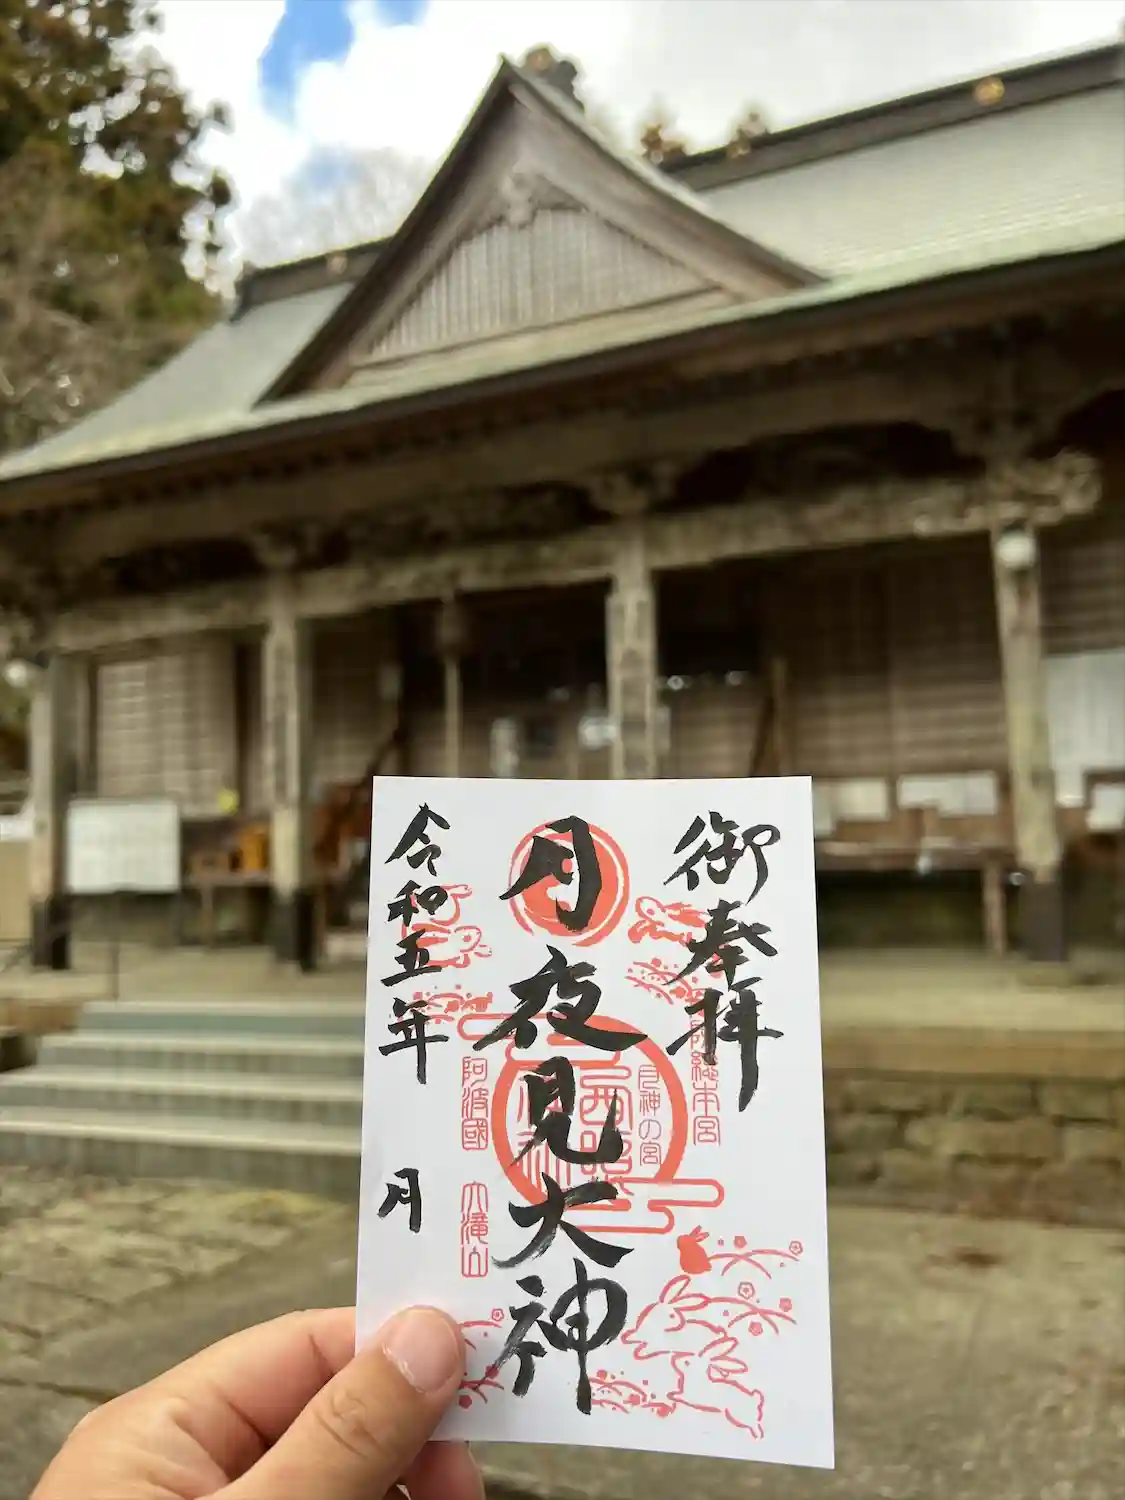 御奉拝
総本宮
月夜見大神
月神の宮
西照
神社
令和五年
月
阿波國
大滝山